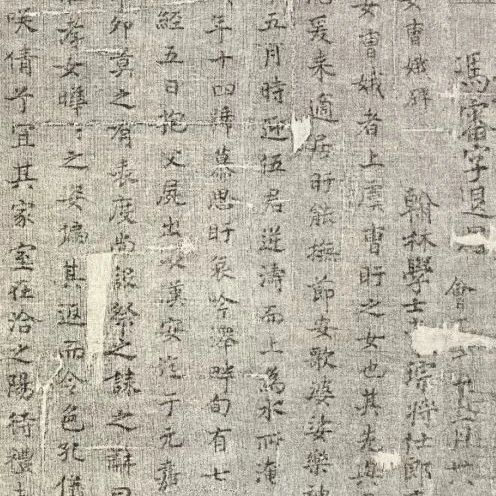 馮審字退 會
女曹娥碑 翰林學士 將仕郎
女曹娥者上虞曹盱之女也其先與
爰来適居盱能撫節安歌婆娑樂神
五月時迎伍君逆濤而上為水所淹
年十四號慕思盱哀吟澤畔旬有七
經五日抱父屍出以漢安迄于元嘉
卯莫之有表度尚設祭之誄之辭曰
孝女曄〻之姿偏其返而令色孔儀
咲倩兮宜其家室在洽之陽待禮